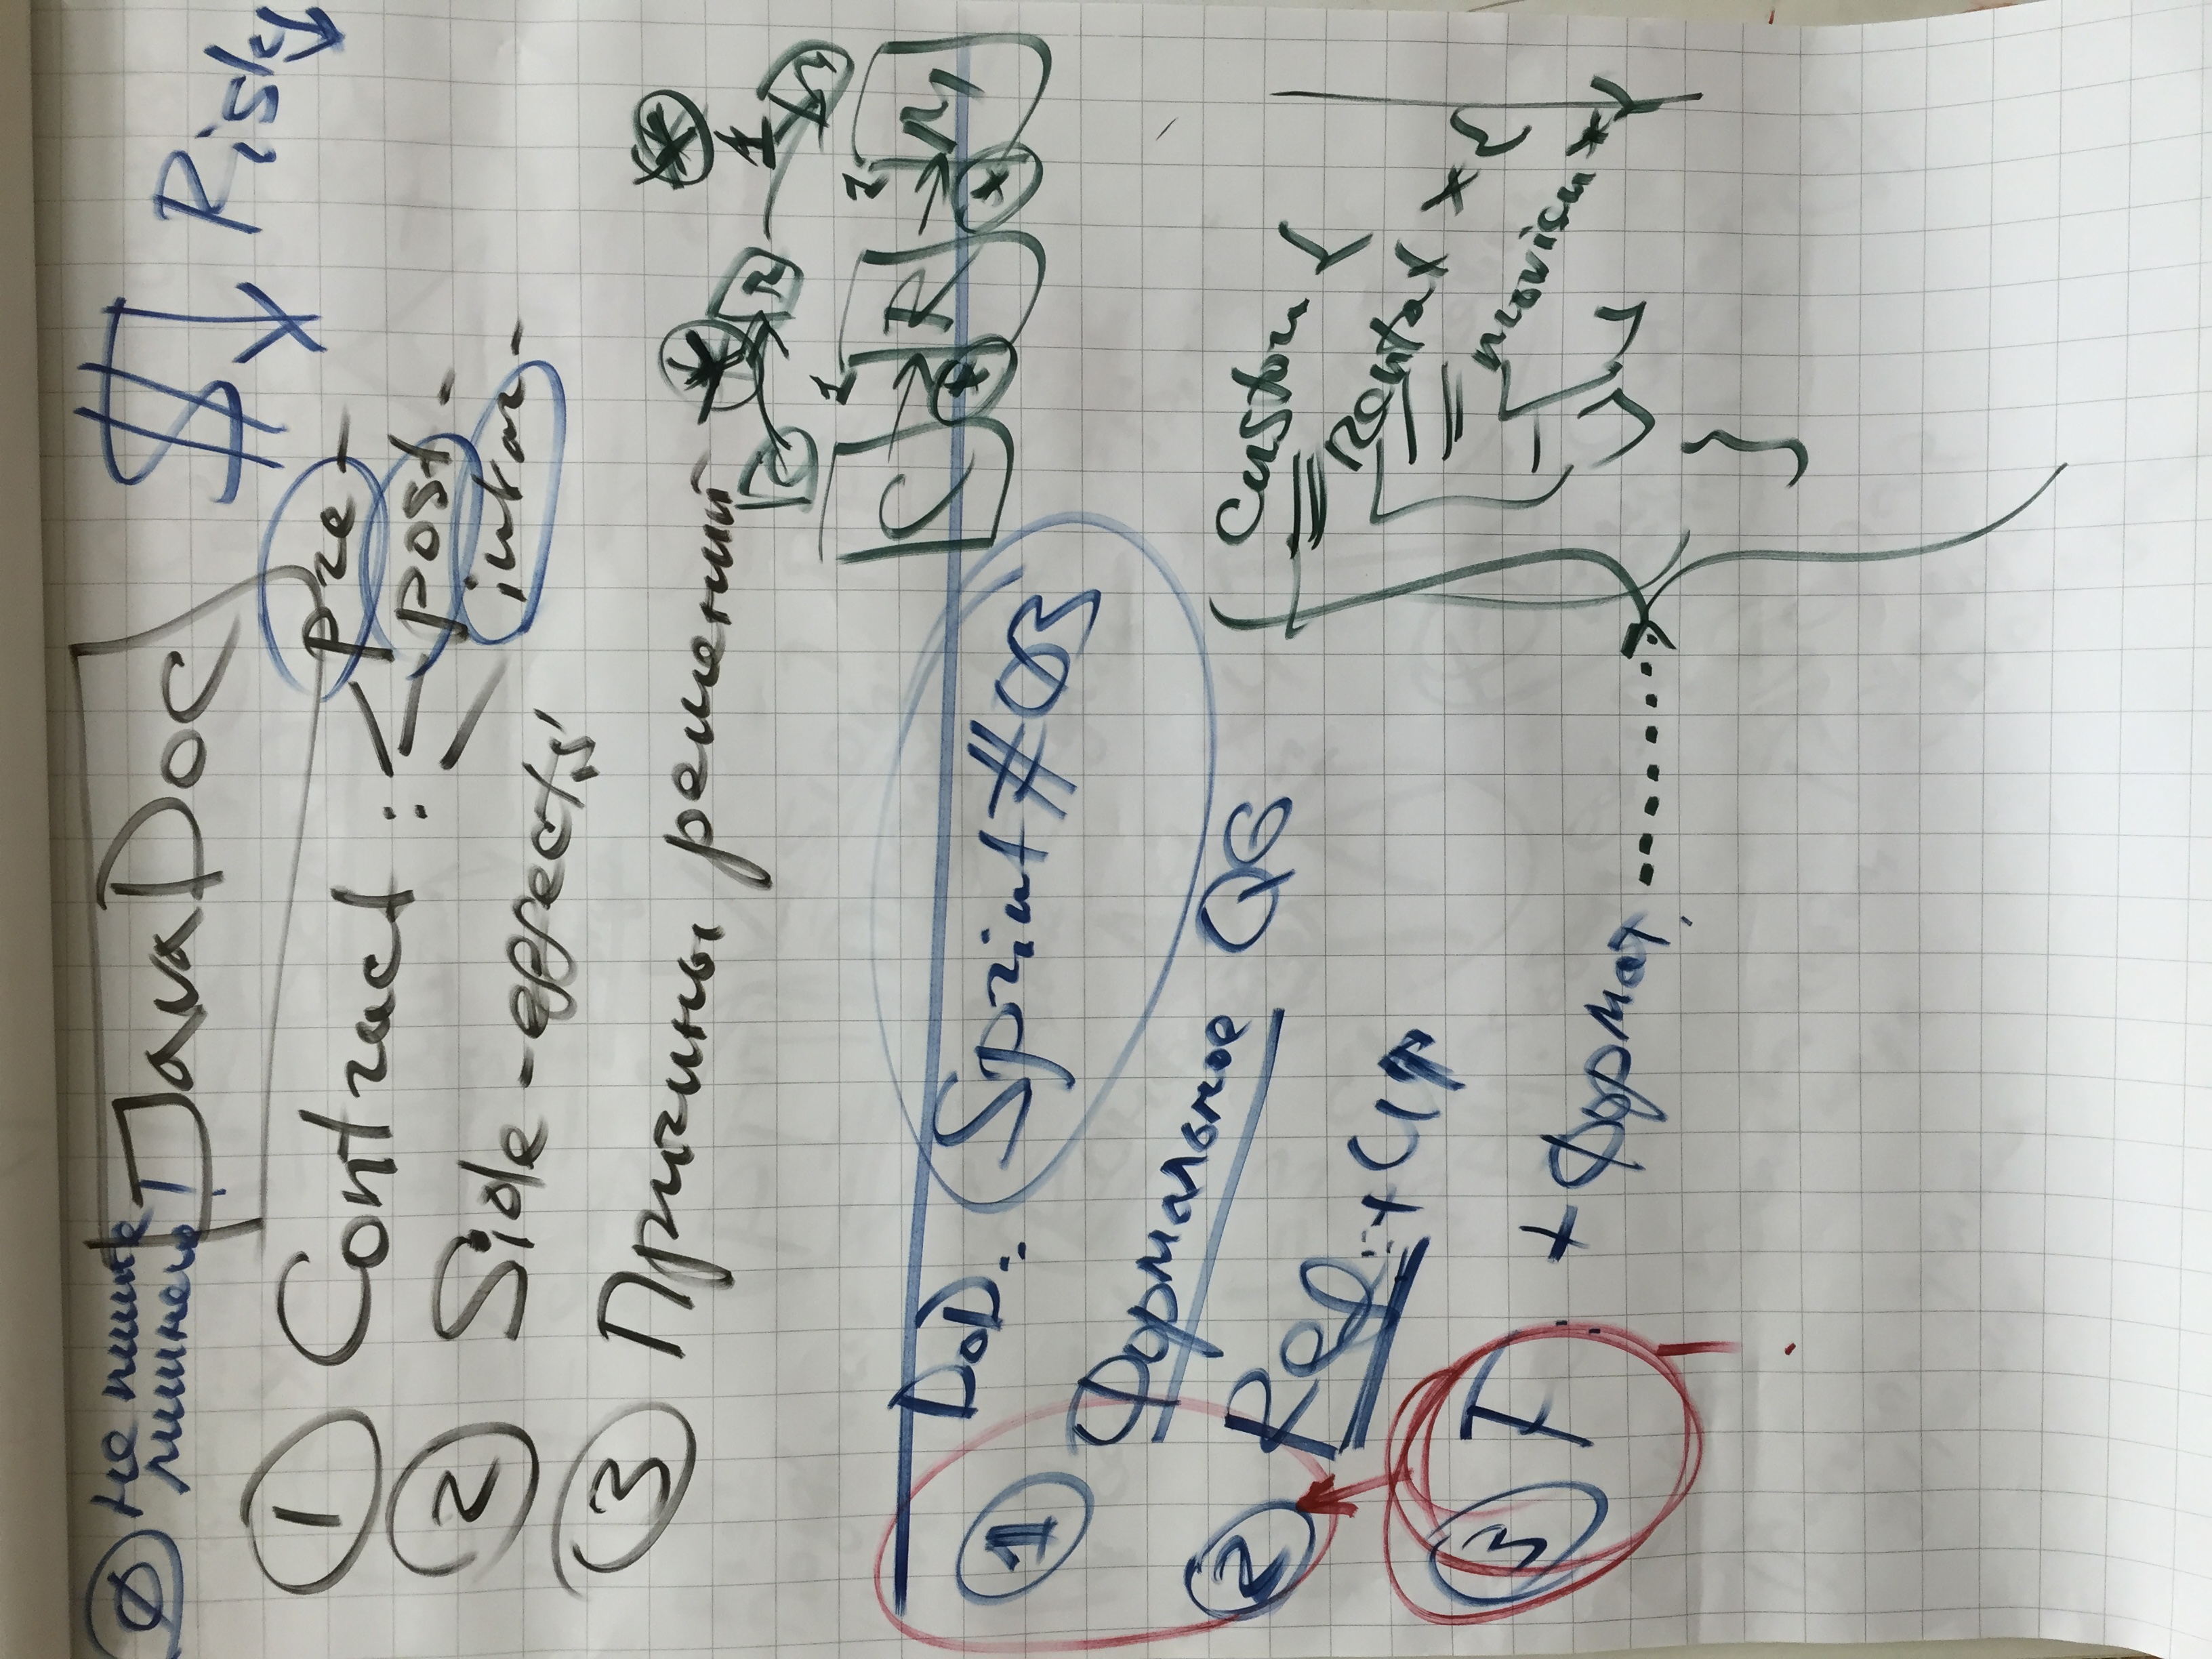 0 Не пишите
лишнего!
JavaDoc
$↓ Risk↓
1 Contract : pre-
post-
invar-
2 Side-effects
3 Причины решений
* *
C R M
1
1 1
C R M
* *
DoD: Sprint #03
1 Формальное QG
2 Ref: + CI↑
3 F: + Формат
Custom {
Rental * {
movies * {
}